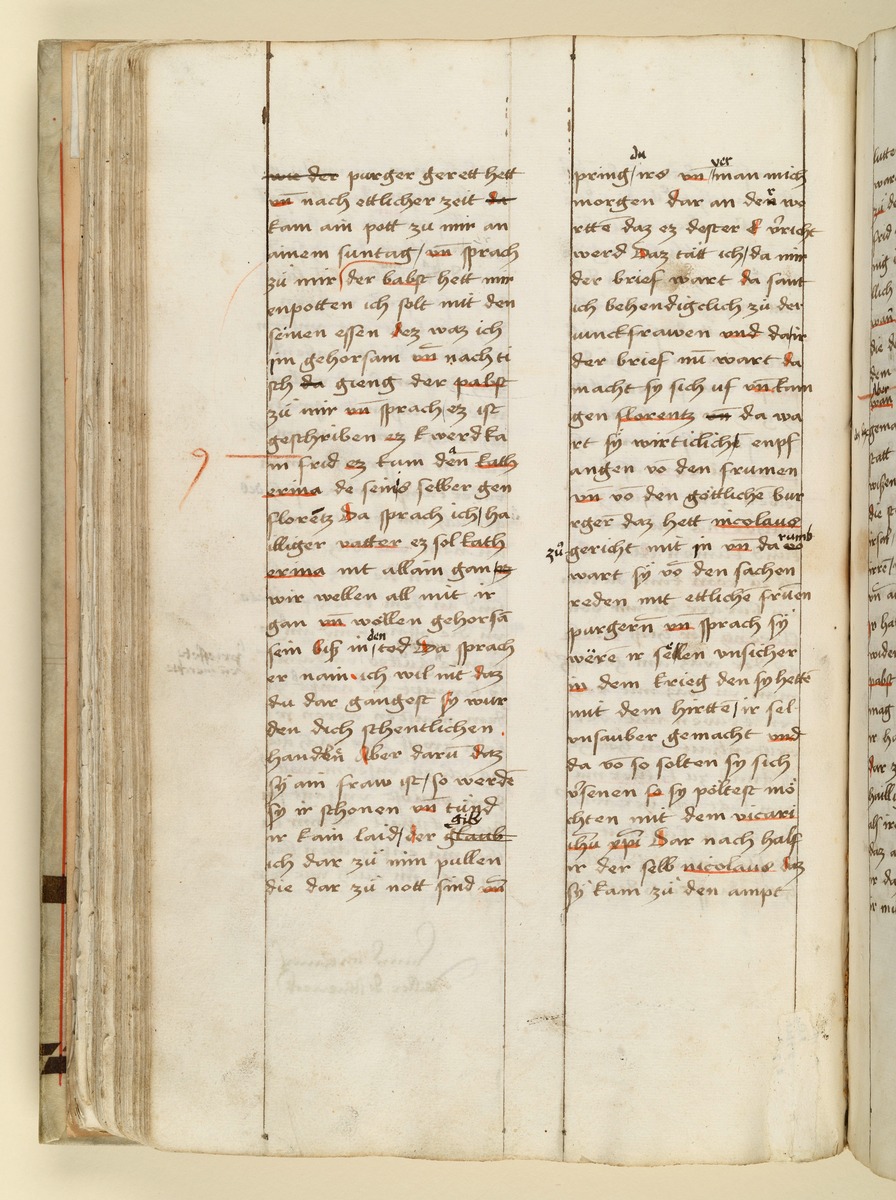 wie der purger gerett hett
vn̄ nach ettlicher zeit da
kam ain pott zu mir an
ainem suntag / vn̄ sprach
zů mir der babst hett mir
enpotten ich solt mit den
seinen essen dez waz ich
im gehorsam vn̄ nach ti
sch da gieng der pabst
zů mir vn̄ sprach ez ist
geschriben ez werd ka
in frid ez kum dēn kath
erina de senis selber gen
florētz Da sprach ich / ha
illiger vatter ez sol kath
erina nit allain gan
wir wellen all mit ir
gan vn̄ wöllen gehorsā
sein biß in den tod Da sprach
er nain ich wil nit daz
du dar gangest sy wur
den dich schentlichen
handlen Aber darū daz
sy ain fraw ist / so werdē
sy ir schonen vn̄ tůnd
ir kain laid / der gib glaub
ich dar zů min pullen
die dar zů nott sind vn̄
pring du irs vn̄ ver man mich
morgen dar an den wo
rttē daz ez dester v̄richt
werd Daz tätt ich / da mir
der brief wart da sant
ich behendigclich zů der
iunckfrawen vnd da ir
der brief nū wart da
macht sy sich uf vn̄ kam
gen florentz vn̄ da wa
rt sy wirticlich enpf
angen vō den frumen
vn̄ vō den göttlichē bur
rger daz hett nicolaus
zů gericht mit in vn̄ da rumb
wart sy vō den sachen
reden mit ettlichē frūen
purgern̄ vn̄ sprach sy
wëre ir sellen vnsicher
in dem krieg den sy hettē
mit dem hirtte / ir sel
vnsauber gemacht vnd
da vō so solten sy sich
v̄senen so sy peltest mö
chten mit dem vicari
ihū xp̄i Dar nach half
ir der selb nicolaus daz
sy kam zů den ampt